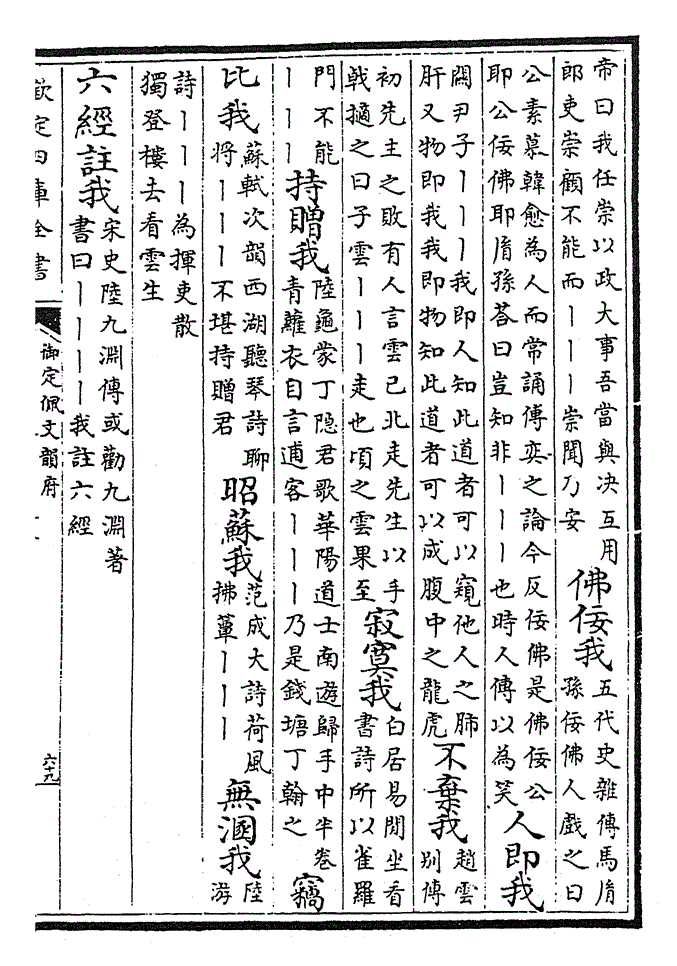 帝曰我任崇以政大事吾當與决互用
郎吏崇顧不能而丨丨丨崇聞乃安
佛佞我
五代史雜傳馬𦙍
孫佞佛人戲之曰
公素慕韓愈為人而常誦傳奕之論今反佞佛是佛佞公
耶公佞佛耶𦙍孫荅曰豈知非丨丨丨也時人傳以為笑
人即我
關尹子丨丨丨我即人知此道者可以窺他人之肺
肝又物即我我即物知此道者可以成腹中之龍虎
不棄我
趙雲
别傳
初先主之敗有人言雲已北走先生以手
戟擿之曰子雲丨丨丨走也頃之雲果至
寂寞我
白居易閒坐看
書詩所以雀羅
門不能
丨丨丨
持贈我
陸龜蒙丁隐君歌華陽道士南遊歸手中半卷
青蘿衣自言逋客丨丨丨乃是錢塘丁翰之
竊
比我
蘇軾次韻西湖聽琴詩聊
將丨丨丨不堪持贈君
昭蘇我
范成大詩荷風
拂蕈丨丨丨
無溷我
陸
游
詩丨丨丨為揮吏散
獨登樓去看雲生
六經註我
宋史陸九淵傳或勸九淵著
書曰丨丨丨丨我註六經
欽定四庫全書
御定佩文韻府
六十九